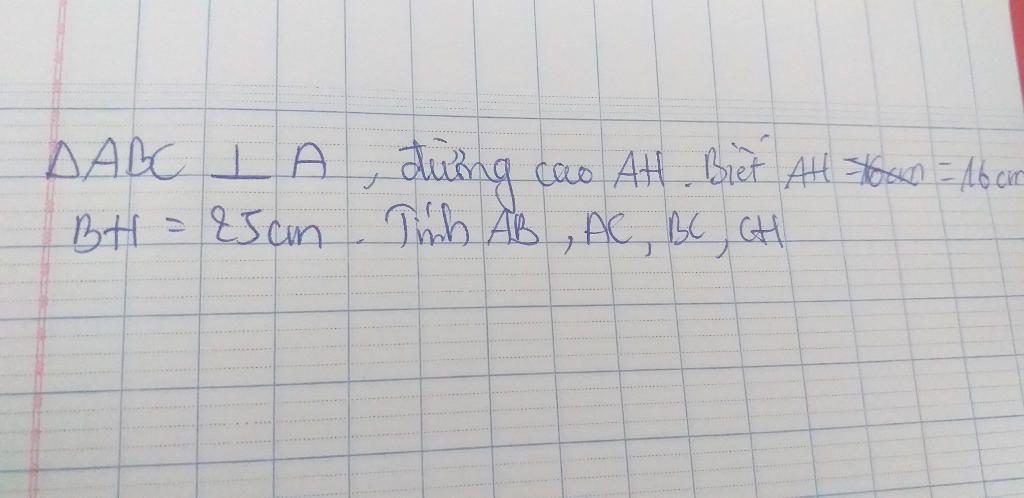 ΔABC ⊥ A, đường cao AH. Biết AH = 16cm = 16 cm
BH = 25cm. Tính AB, AC, BC, CH